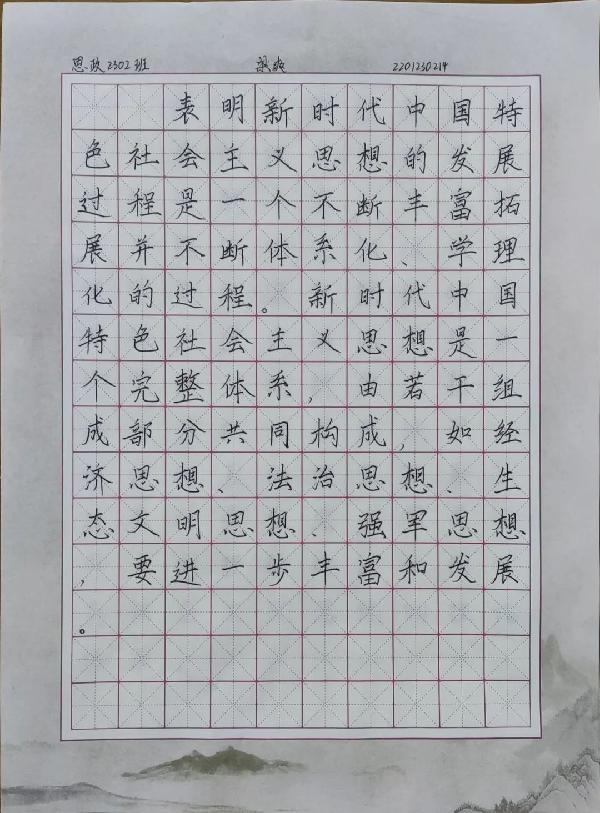 思政2302班 梁爽 2201230214
表明新时代中国特
色社会主义思想的发展
过程是一个不断丰富拓
展并不断体系化、学理
化的过程。新时代中国
特色社会主义思想是一
个完整体系,由若干组
成部分共同构成,如经
济思想、法治思想、生
态文明思想、强军思想
,要进一步丰富和发展
。